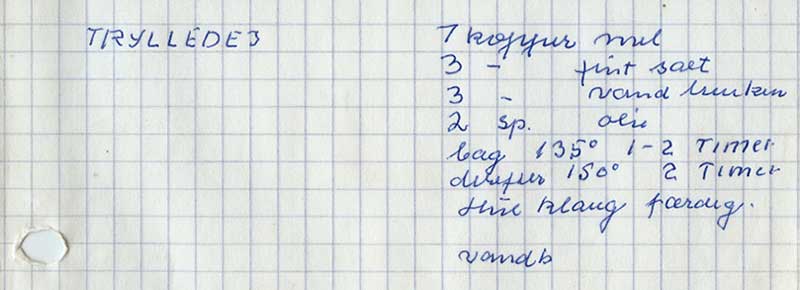 TRYLLEDEJ
7 kopper mel
3 - fint salt
3 - vand lunken
2 sp. olie
bag 135° 1-2 Timer
derefter 150° 2 Timer
klang færdig.
vandb